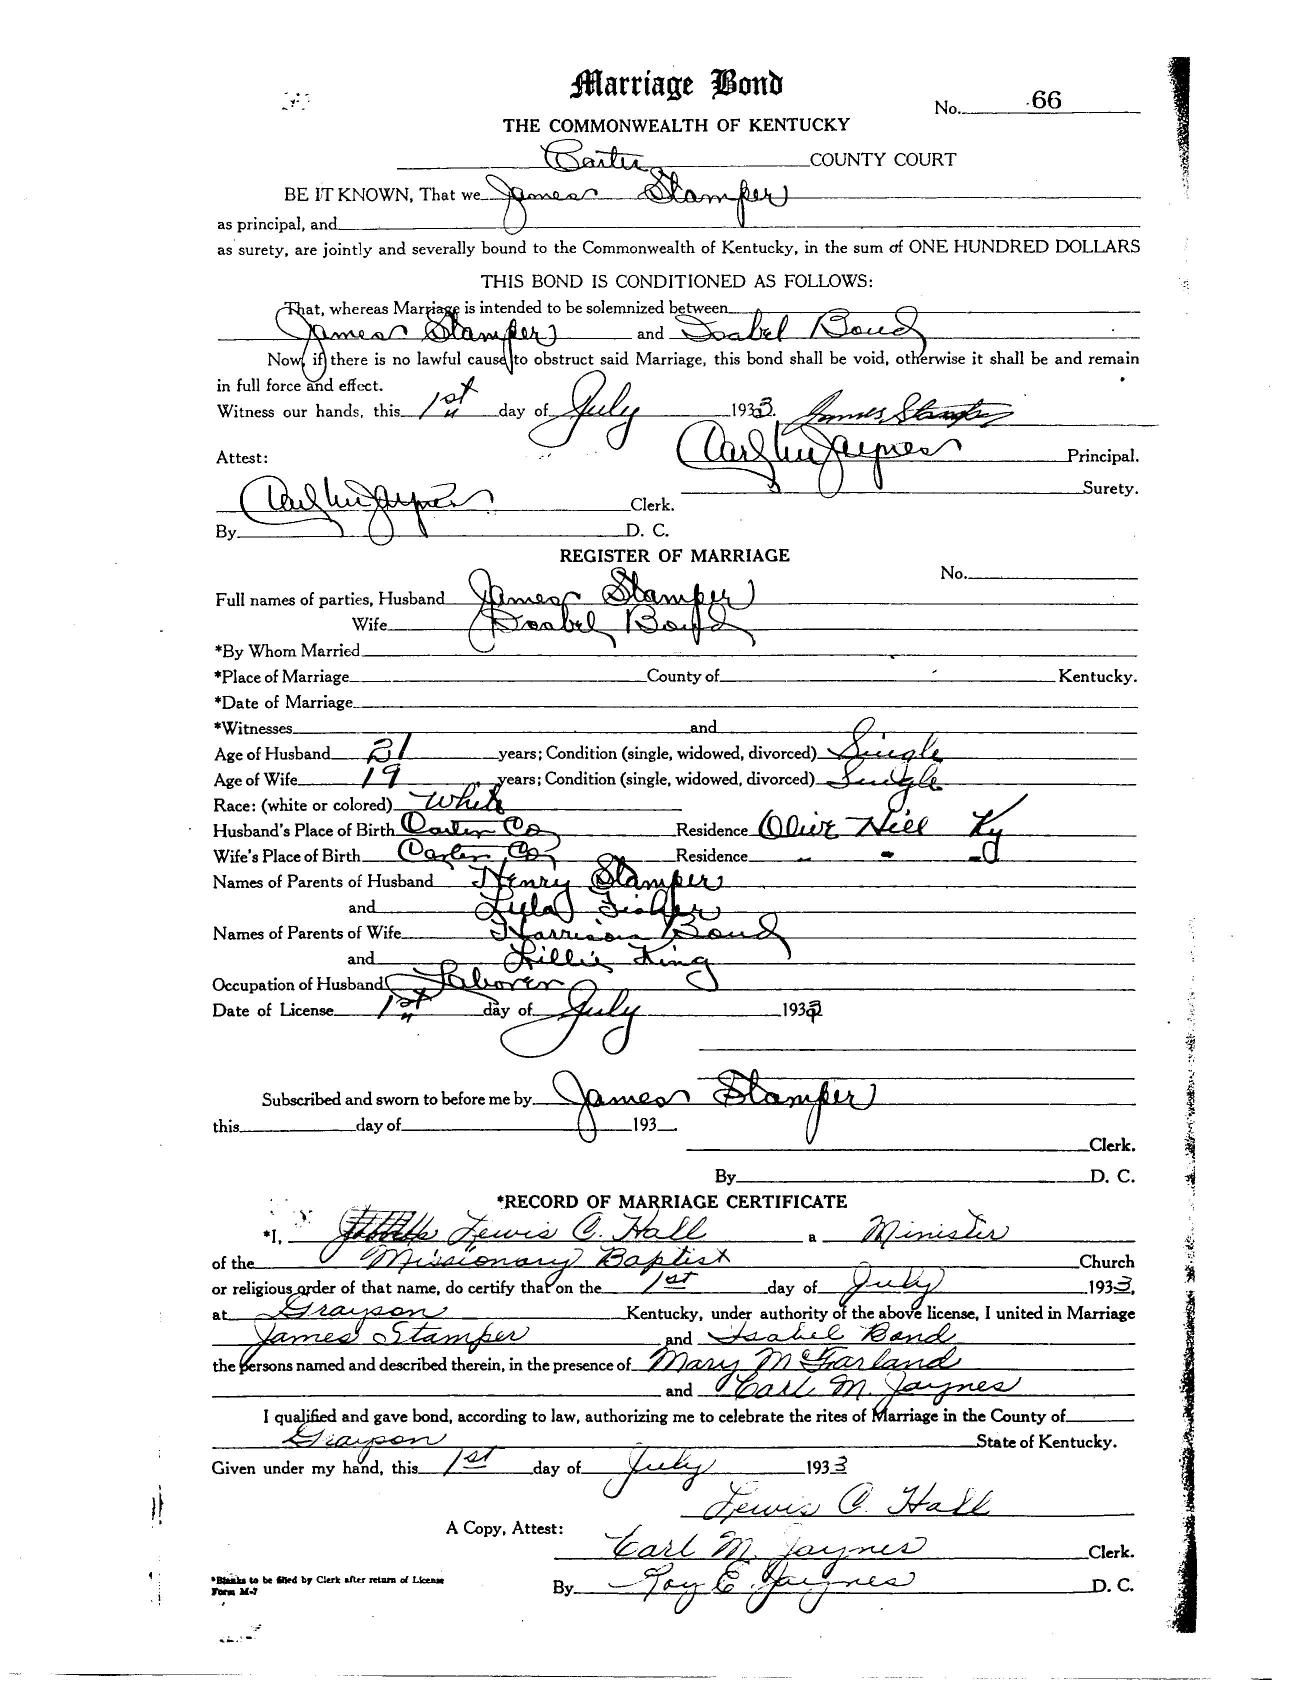 Marriage Bond
No. 66
THE COMMONWEALTH OF KENTUCKY
Carter COUNTY COURT
BE IT KNOWN, That we James Stamper
as principal, and
as surety, are jointly and severally bound to the Commonwealth of Kentucky, in the sum of ONE HUNDRED DOLLARS
THIS BOND IS CONDITIONED AS FOLLOWS:
That, whereas Marriage is intended to be solemnized between
James Stamper and Isabel Bond
Now, if there is no lawful cause to obstruct said Marriage, this bond shall be void, otherwise it shall be and remain
in full force and effect.
Witness our hands, this 1st day of July 1933. James Stamper
Attest: Carl M Jaynes Principal.
Surety.
Carl M Jaynes Clerk.
By D. C.
REGISTER OF MARRIAGE
No.
Full names of parties, Husband James Stamper
Wife Isabel Bond
*By Whom Married
*Place of Marriage County of Kentucky.
*Date of Marriage
*Witnesses and
Age of Husband 21 years; Condition (single, widowed, divorced) Single
Age of Wife 19 years; Condition (single, widowed, divorced) Single
Race: (white or colored) White
Husband's Place of Birth Carter Co Residence Olive Hill Ky
Wife's Place of Birth Carter Co Residence " " "
Names of Parents of Husband Henry Stamper
and Lula Fisher
Names of Parents of Wife Harrison Bond
and Lillie King
Occupation of Husband Laborer
Date of License 1st day of July 1933
Subscribed and sworn to before me by James Stamper
this day of 193
Clerk.
By D. C.
*RECORD OF MARRIAGE CERTIFICATE
*I, Lewis C. Hall a Minister
of the Missionary Baptist Church
or religious order of that name, do certify that on the 1st day of July 1933,
at Grayson Kentucky, under authority of the above license, I united in Marriage
James Stamper and Isabel Bond
the persons named and described therein, in the presence of Mary McFarland
and Carl M. Jaynes
I qualified and gave bond, according to law, authorizing me to celebrate the rites of Marriage in the County of
Grayson State of Kentucky.
Given under my hand, this 1st day of July 1933
Lewis C. Hall
A Copy, Attest:
Carl M. Jaynes Clerk.
*Blanks to be filled by Clerk after return of License
Form M-7
By Roy E. Jaynes D. C.